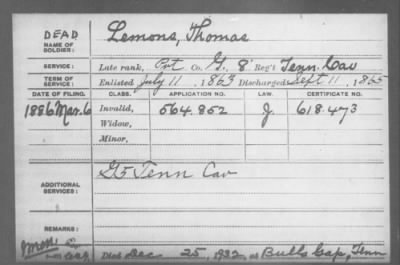 DEAD
NAME OF SOLDIER: Lemons, Thomas
SERVICE: Late rank, Pvt Co. G, 8" Reg't Tenn. Cav
TERM OF SERVICE: Enlisted July 11, 1863 Discharged Sept 11, 1865
DATE OF FILING. CLASS. APPLICATION NO. LAW. CERTIFICATE NO.
1886 Mar. 6 Invalid, 564.852 J. 618.473
Widow,
Minor,
ADDITIONAL SERVICES: G 5 Tenn Cav
REMARKS:
Died Dec 25, 1932, at Bulls Gap, Tenn